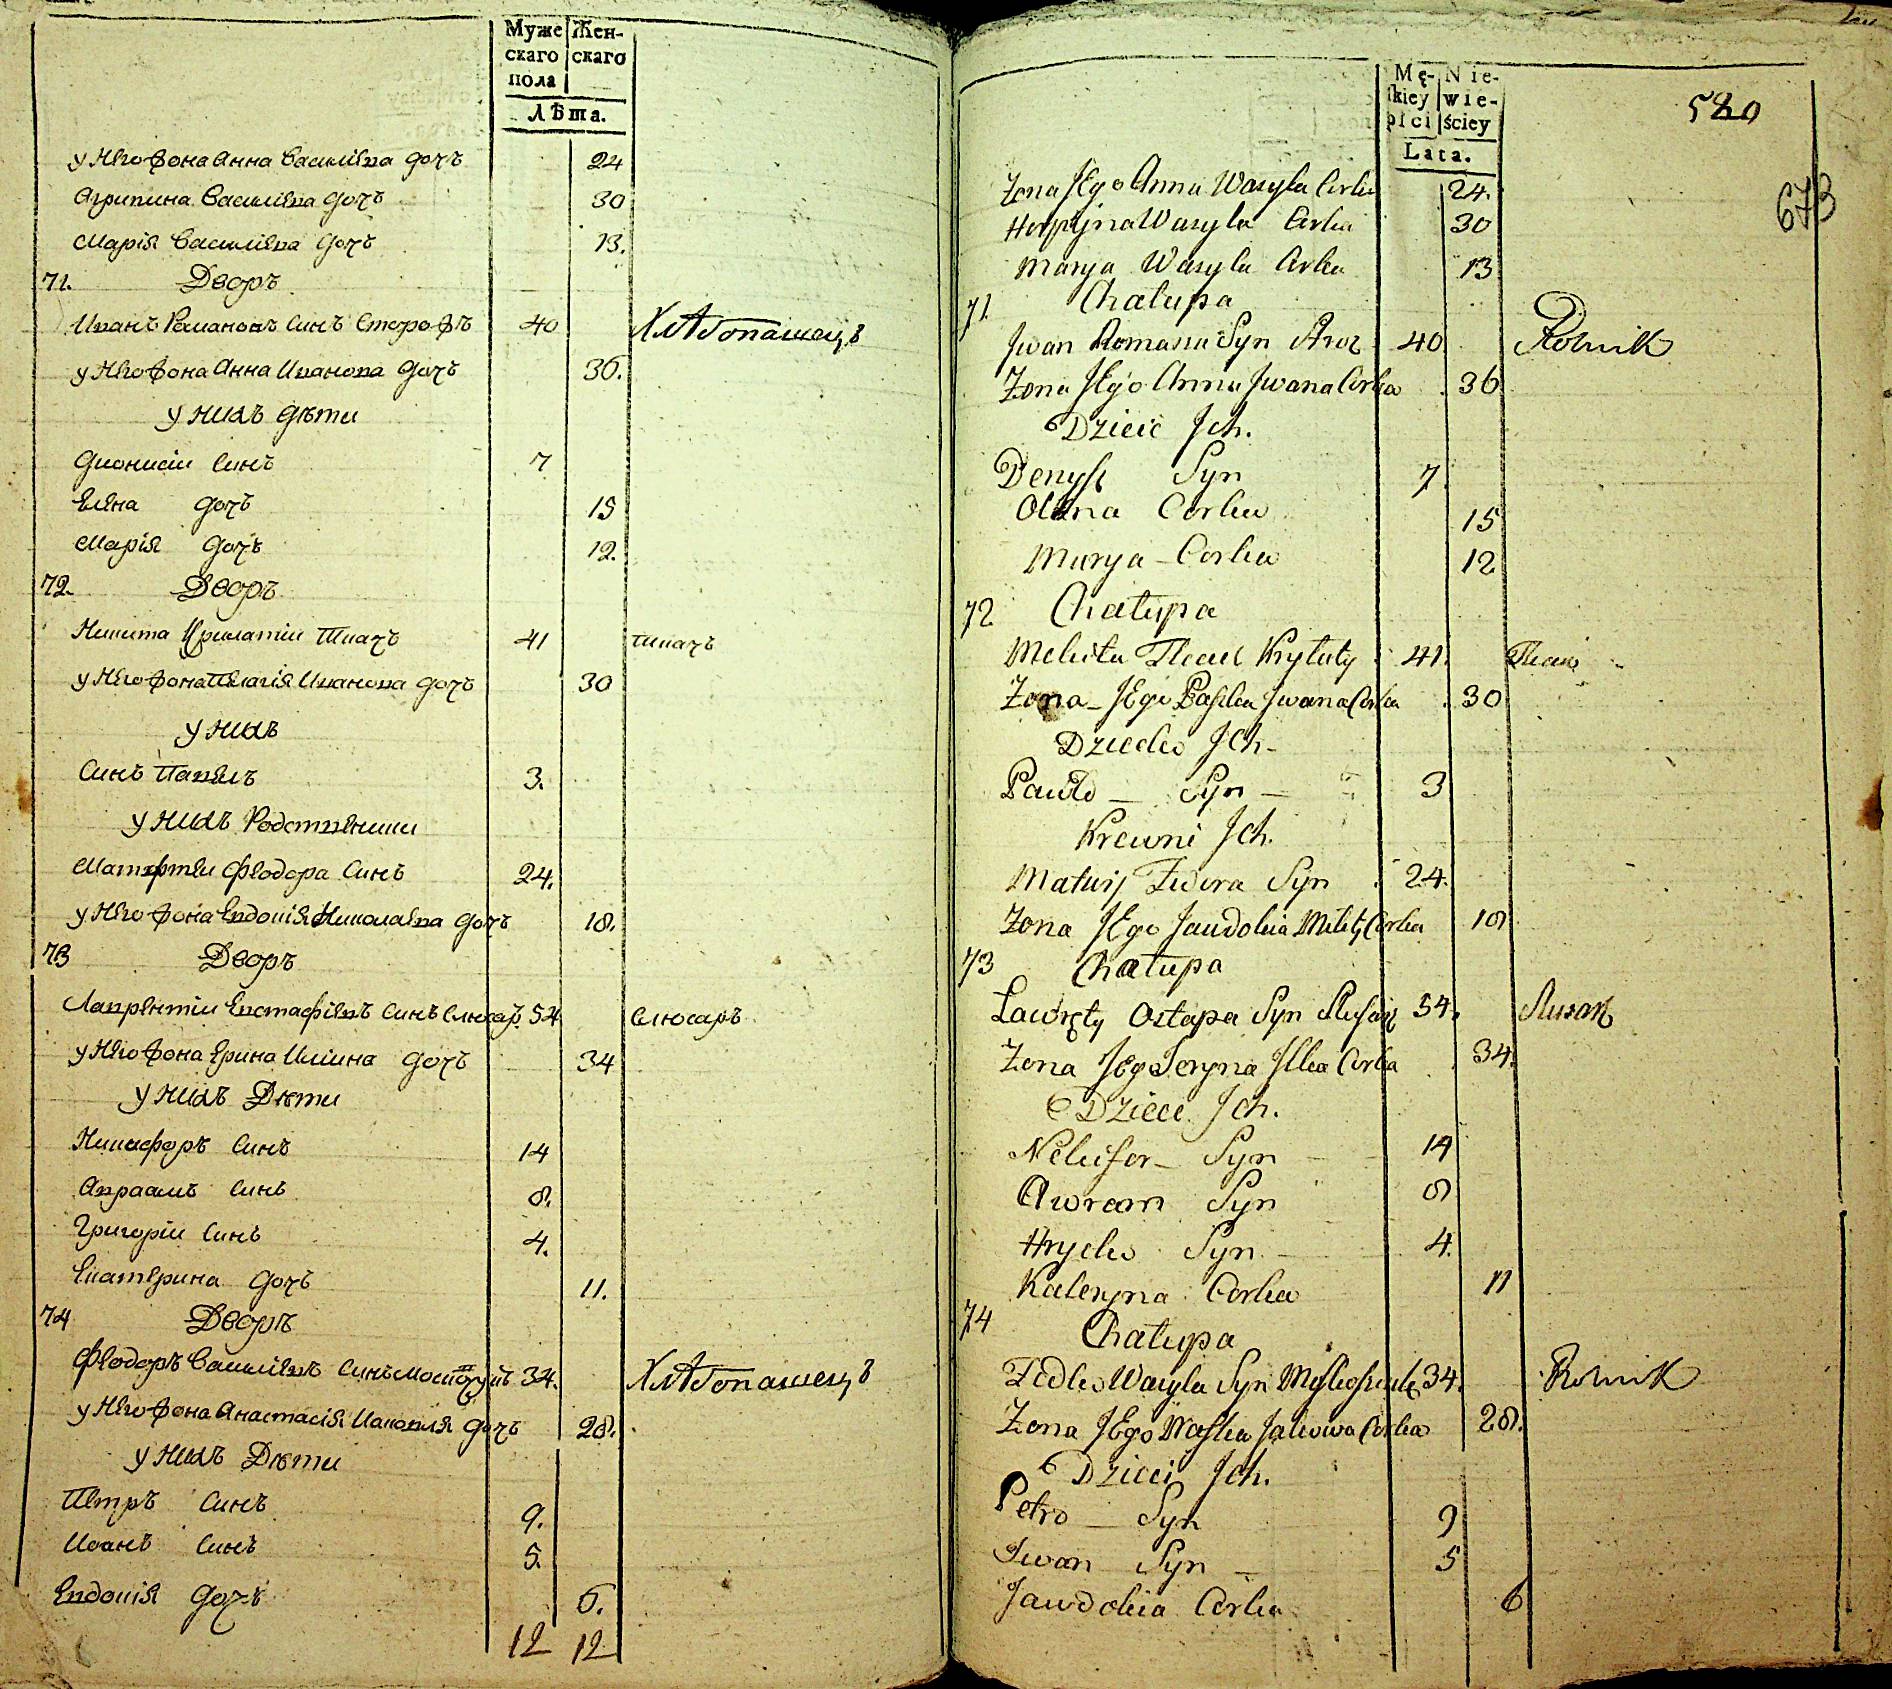 Муже Жен-
скаго скаго
пола
Лѣта.
у Него Жона Анна Василіева дочъ 24
Агрипина Василіева дочъ 30
Марія Василіева дочъ 13.
71. Дворъ
Иванъ Романовъ Синъ 40 Хлѣбопашецъ
у Него Жона Анна Иванова дочъ 36.
у нихъ дѣти
Дионисіи Синъ 7
Елена дочъ 15
Марія дочъ 12.
72. Дворъ
Никита Крилатіи Ткачъ 41 ткачъ
у Него Жона Пелагія Иванова дочъ 30
у нихъ
Синъ Павелъ 3.
у нихъ Родственики
Матфтеи Феодора Синъ 24.
у Него Жона Евдокія Николаева дочъ 18.
73 Дворъ
Лаврентіи Евстафіевъ Синъ Слюсар 54 Слюсаръ
у Него Жона Ерина Илиина дочъ 34
у нихъ Дѣти
Никифоръ Синъ 14
Авраамъ Синъ 8.
Григоріи Синъ 4.
Екатерина дочъ 11.
74 Дворъ
Феодоръ Василіевъ Синъ 34. Хлѣбопашецъ
у Него Жона Анастасія Иаковля дочъ 28.
у нихъ Дѣти
Петръ Синъ 9.
Иоанъ Синъ 5.
Евдокія дочъ 6.
12 12
Mę- Nie-
skiey wie-
płci ściey
Lata.
580
673
Żona Jego Anna Wasyla Corka 24.
Horpyna Wasyla Corka 30
Marya Wasyla Corka 13
71 Chałupa
Jwan Romana Syn 40 Rolnik
Żona Jego Anna Jwana Corka 36
Dzieci Jch.
Denys Syn 7
Olena Corka 15
Marya Corka 12
72 Chałupa
Mekita Tkacz Kryłaty 41. Tkacz
Żona Jego Paska Jwana Corka 30
Dziecko Jch
Pawło Syn 3
Krewni Jch.
Matwij Fedora Syn 24.
Żona Jego Jawdokia Mikity Corka 18
73 Chałupa
Ławręty Ostapa Syn Slusarz 54. Slusarz
Żona Jego Jeryna Jlka Corka 34.
Dzieci Jch.
Nekifor Syn 14
Awram Syn 8
Hrycko Syn 4.
Kateryna Corka 11
74 Chałupa
Fedko Wasyla Syn 34. Rolnik
Żona Jego Naska Jakowa Corka 28.
Dzieci Jch.
Petro Syn 9
Jwan Syn 5
Jawdokia Corka 6